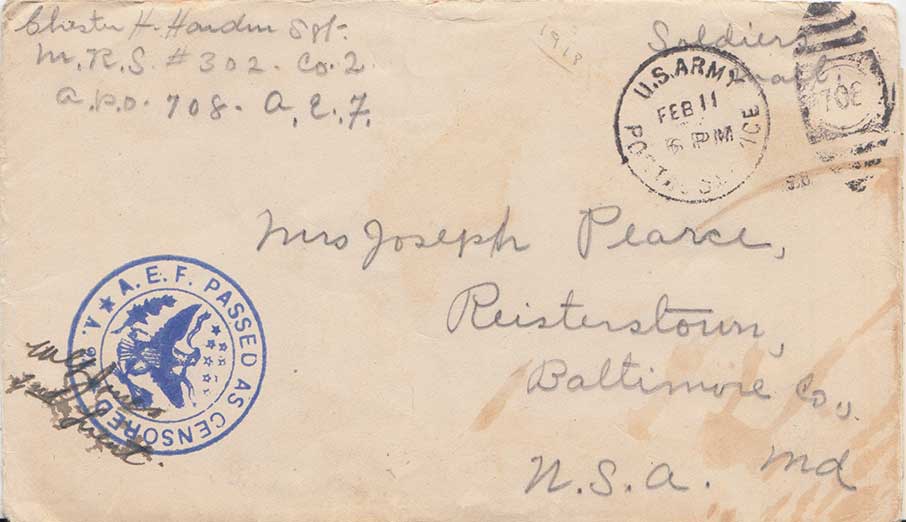 Chester H. Hardin Sgt.
M.R.S. #302. Co. 2
A.P.O. 708. A.E.F.
1918
Soldiers
mail.
U.S. ARMY
FEB 11
6 PM
POSTAL SERVICE
702
Mrs Joseph Pearce,
Reisterstown,
Baltimore Co.
Md
U.S.A.
A.E.F. PASSED AS CENSORED